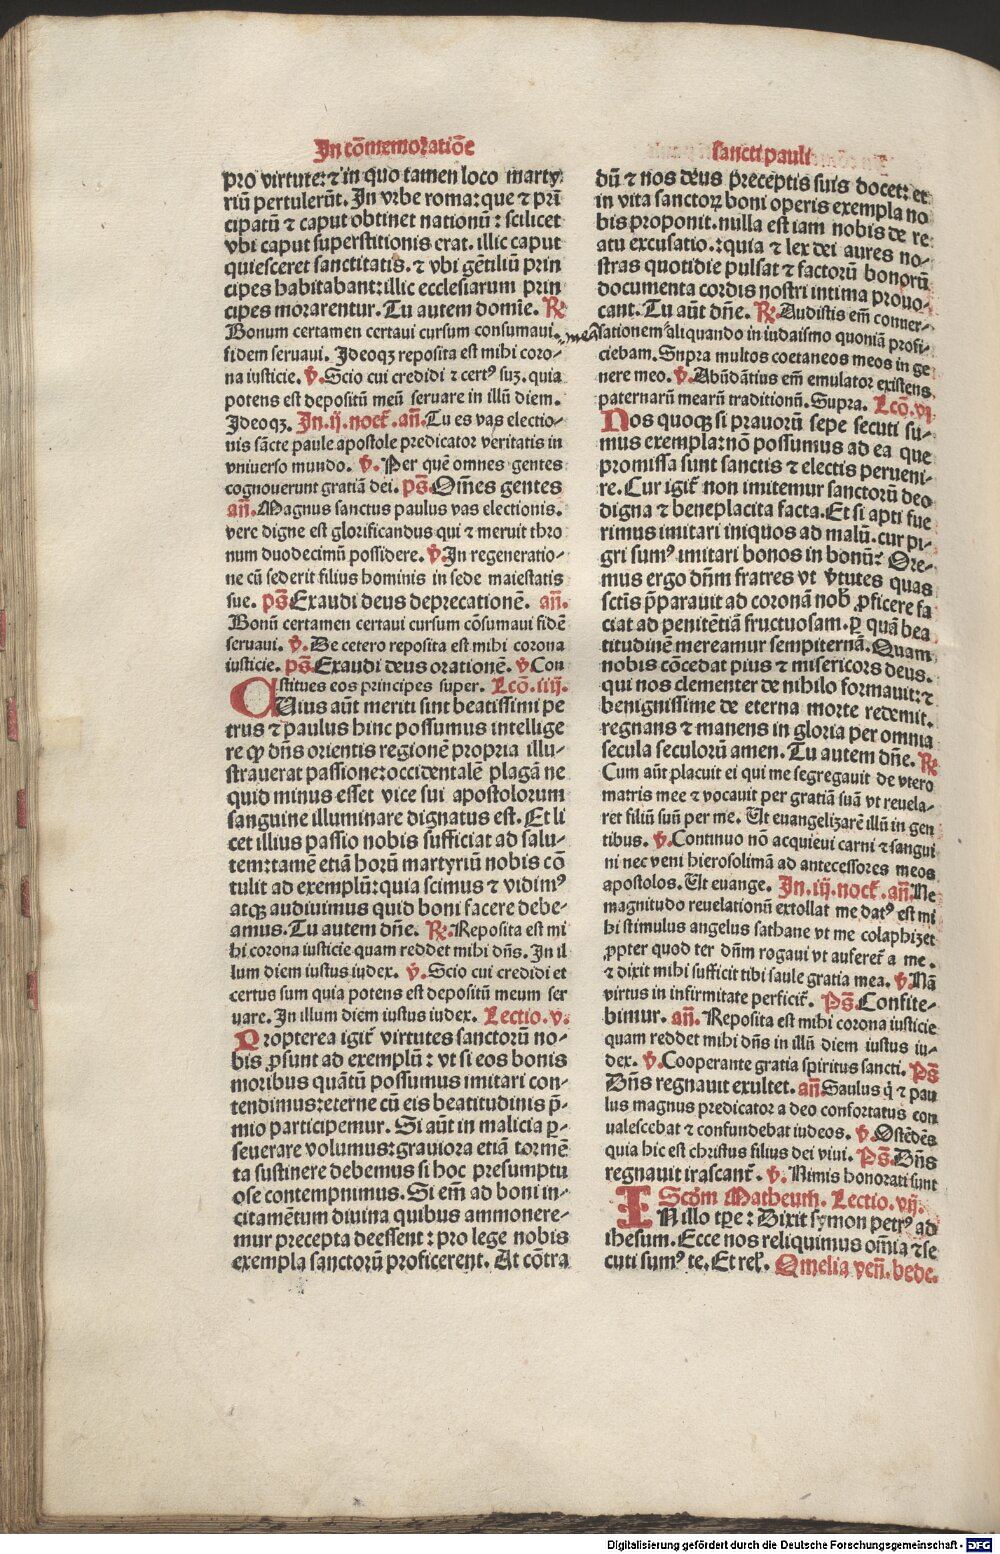 In cõmemoratiõe
pro virtute: ⁊ in quo tamen loco marty
riũ pertulerũt. In vrbe roma: que ⁊ prĩ
cipatũ ⁊ caput obtinet nationũ: scilicet
vbi caput superstitionis erat. illic caput
quiesceret sanctitatis. ⁊ vbi gẽtiliũ prin
cipes habitabant: illic ecclesiarum prin
cipes morarentur. Tu autem domĩe. ℞
Bonum certamen certaui cursum consumaui.
fidem seruaui. Ideoqꝫ reposita est mihi coro⸗
na iusticie. ℣. Scio cui credidi ⁊ certꝰ suꝫ. quia
potens est depositũ meũ seruare in illũ diem.
Ideoqꝫ. In .ij. noct̃. añ. Tu es vas electio⸗
nis sãcte paule apostole predicator veritatis in
vniuerso mundo. ℣. Per quẽ omnes gentes
cognouerunt gratiã dei. ps̃. Om̃es gentes
añ. Magnus sanctus paulus vas electionis.
vere digne est glorificandus qui ⁊ meruit thro
num duodecimũ possidere. ℣. In regeneratio⸗
ne cũ sederit filius hominis in sede maiestatis
sue. ps̃ Exaudi deus deprecationẽ. añ.
Bonũ certamen certaui cursum cõsumaui fidẽ
seruaui. ℣. De cetero reposita est mihi corona
iusticie. ps̃. Exaudi deus orationẽ. ℣ Con
stitues eos principes super. Lcõ. iiij.
Cuius aũt meriti sunt beatissimi pe
trus ⁊ paulus hinc possumus intellige
re ꝙ dñs orientis regionẽ propria illu⸗
strauerat passione: occidentalẽ plagã ne
quid minus esset vice sui apostolorum
sanguine illuminare dignatus est. Et li
cet illius passio nobis sufficiat ad salu⸗
tem: tamẽ etiã horũ martyriũ nobis cõ
tulit ad exemplũ: quia scimus ⁊ vidimꝰ
atqꝫ audiuimus quid boni facere debe⸗
amus. Tu autem dñe. ℞. Reposita est mi
hi corona iusticie quam reddet mihi dñs. In il
lum diem iustus iudex. ℣. Scio cui credidi et
certus sum quia potens est depositũ meum ser
uare. In illum diem iustus iudex. Lectio. v.
Propterea igit̃ virtutes sanctorũ no⸗
bis ꝓsunt ad exemplũ: vt si eos bonis
moribus quãtũ possumus imitari con⸗
tendimus: eterne cũ eis beatitudinis p̃⸗
mio participemur. Si aũt in malicia ꝑ⸗
seuerare volumus: grauiora etiã tormẽ
ta sustinere debemus si hoc presumptu
ose contempnimus. Si em̃ ad boni in⸗
citamẽtum diuina quibus ammonere⸗
mur precepta deessent: pro lege nobis
exempla sanctorũ proficerent. At cõtra
sancti pauli
dũ ⁊ nos deus preceptis suis docet: et
in vita sanctoꝝ boni operis exempla no
bis proponit. nulla est iam nobis de re
atu excusatio.: quia ⁊ lex dei aures no⸗
stras quotidie pulsat ⁊ factorũ bonorũ
documenta cordis nostri intima prouo⸗
cant. Tu aũt dñe. ℞. Audistis em̃ conuer⸗
meã
sationem aliquando in iudaismo quoniã profi⸗
ciebam. Supra multos coetaneos meos in ge
nere meo. ℣. Abũdãtius em̃ emulator existens
paternarũ mearũ traditionũ. Supra. Lcõ. vj
Nos quoqꝫ si prauorũ sepe secuti su⸗
mus exempla: nõ possumus ad ea que
promissa sunt sanctis ⁊ electis perueni⸗
re. Cur igit̃ non imitemur sanctorũ deo
digna ⁊ beneplacita facta. Et si apti fue
rimus imitari iniquos ad malũ. cur pi⸗
gri sumꝰ imitari bonos in bonũ: Ore⸗
mus ergo dñm fratres vt ṽtutes quas
sctĩs p̃parauit ad coronã nob̃ ꝓficere fa
ciat ad penitẽtiã fructuosam. ꝑ quã bea
titudinẽ mereamur sempiternã. Quam
nobis cõcedat pius ⁊ misericors deus.
qui nos clementer de nihilo formauit: ⁊
benignissime de eterna morte redemit.
regnans ⁊ manens in gloria per omnia
secula seculorũ amen. Tu autem dñe. ℞
Cum aũt placuit ei qui me segregauit de vtero
matris mee ⁊ vocauit per gratiã suã vt reuela⸗
ret filiũ suũ per me. Ut euangelizarẽ illũ in gen
tibus. ℣. Continuo nõ acquieui carni ⁊ sangui
ni nec veni hierosolimã ad antecessores meos
apostolos. Ut euange. In .iij. noct̃. añ. Ne
magnitudo reuelationũ extollat me datꝰ est mi
hi stimulus angelus sathane vt me colaphizet
ꝓpter quod ter dñm rogaui vt auferet̃ a me.
⁊ dixit mihi sufficit tibi saule gratia mea. ℣. Nã
virtus in infirmitate perficit̃. Ps̃. Confite⸗
bimur. añ. Reposita est mihi corona iusticie
quam reddet mihi dñs in illũ diem iustus iu⸗
dex. ℣. Cooperante gratia spiritus sancti. Ps̃
Dñs regnauit exultet. añ Saulus q̃ ⁊ pau
lus magnus predicator a deo confortatus con
ualescebat ⁊ confundebat iudeos. ℣. Ostẽdẽs
quia hic est christus filius dei viui. Ps̃. Dñs
regnauit irascant̃. ℣. Nimis honorati sunt
Scd̃m Matheum. Lectio. vij.
In illo tp̃e: Dixit symon petrꝰ ad
ihesum. Ecce nos reliquimus om̃ia ⁊ se
cuti sumꝰ te. Et rel̃. Omelia veñ. bede.
Digitalisierung gefördert durch die Deutsche Forschungsgemeinschaft - DFG